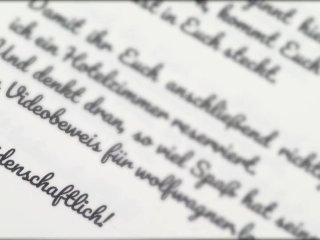 ginnt hie
kommt Euch
t in Euch steckt.
Damit ihr Euch anschließend richti
ich ein Hotelzimmer reserviert.
Und denkt dran, so viel Spaß hat sein
Videobeweis für wolfwagner
denschaftlich!